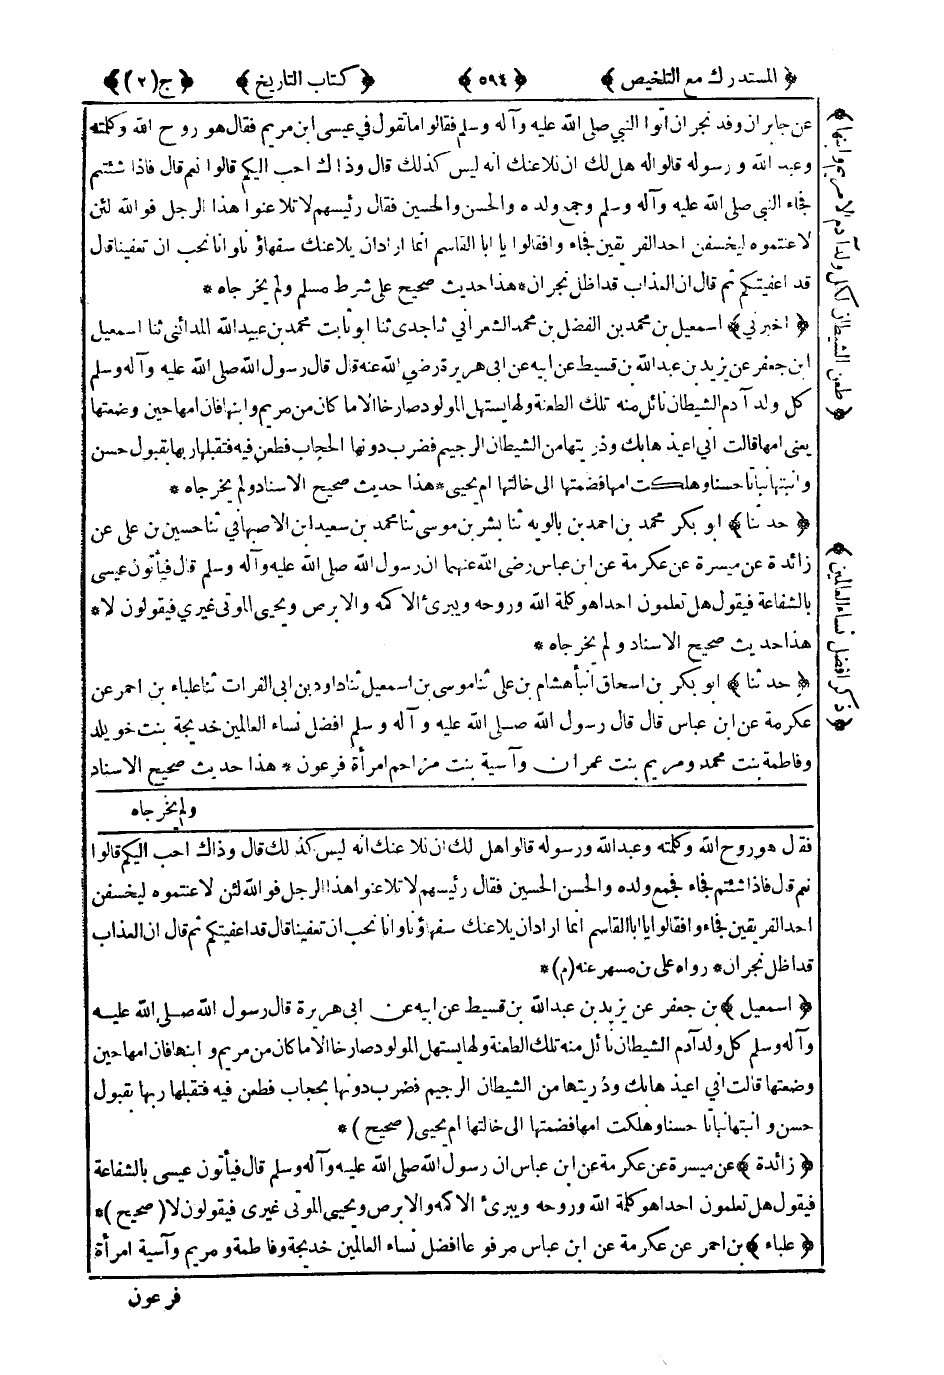 ﴿ المستدرك مع التلخيص ﴾ ﴿ ٥٩٤ ﴾ ﴿ كتاب التاريخ ﴾ ﴿ ج (٢) ﴾
عن جابر ان وفد نجران اتوا النبي صلى الله عليه وآله وسلم فقالوا ما تقول في عيسى ابن مريم فقال هو روح الله وكلمته
وعبد الله ورسوله قالوا له هل لك ان نلاعنك انه ليس كذلك قال وذاك احب اليكم قالوا نعم قال فاذا شئتم
فجاء النبي صلى الله عليه وآله وسلم وجمع ولده والحسن والحسين فقال رئيسهم لا تلاعنوا هذا الرجل فوالله لئن
لاعنتموه ليخسفن احد الفريقين فجاءوا فقالوا يا ابا القاسم انما اراد ان يلاعنك سفهاؤنا وانا نحب ان تعفينا قال
قد اعفيتكم ثم قال ان العذاب قد اظل نجران * هذا حديث صحيح على شرط مسلم ولم يخرجاه *
﴿ اخبرني ﴾ اسمعيل بن محمد بن الفضل بن محمد الشعراني ثنا جدي ثنا ابو ثابت محمد بن عبيد الله المدائني ثنا اسمعيل
ابن جعفر عن يزيد بن عبد الله بن قسيط عن ابيه عن ابي هريرة رضي الله عنه قال قال رسول الله صلى الله عليه وآله وسلم
كل ولد آدم الشيطان نائل منه تلك الطعنة ولها يستهل المولود صارخا الا ما كان من مريم وابنها فان امها حين وضعتها
يعني امها قالت اني اعيذها بك وذريتها من الشيطان الرجيم فضرب دونها الحجاب فطعن فيه فتقبلها ربها بقبول حسن
وانبتها نباتا حسنا وهلكت امها فضمتها الى خالتها ام يحيى * هذا حديث صحيح الاسناد ولم يخرجاه *
﴿ حدثنا ﴾ ابو بكر محمد بن احمد بن بالويه ثنا بشر بن موسى ثنا محمد بن سعيد ابن الاصبهاني ثنا حسين بن علي عن
زائدة عن ميسرة عن عكرمة عن ابن عباس رضي الله عنهما ان رسول الله صلى الله عليه وآله وسلم قال فيأتون عيسى
بالشفاعة فيقول هل تعلمون احدا هو كلمة الله وروحه ويبرئ الاكمه والابرص ويحيي الموتى غيري فيقولون لا *
هذا حديث صحيح الاسناد ولم يخرجاه *
﴿ حدثنا ﴾ ابو بكر بن اسحاق انبأ هشام بن علي ثنا موسى بن اسمعيل ثنا داود بن ابي الفرات ثنا علباء بن احمر عن
عكرمة عن ابن عباس قال قال رسول الله صلى الله عليه وآله وسلم افضل نساء العالمين خديجة بنت خويلد
وفاطمة بنت محمد ومريم بنت عمران وآسية بنت مزاحم امرأة فرعون * هذا حديث صحيح الاسناد
ولم يخرجاه
فقال هو روح الله وكلمته وعبد الله ورسوله قالوا هل لك ان نلاعنك انه ليس كذلك قال وذاك احب اليكم قالوا
نعم قال فاذا شئتم فجاء فجمع ولده والحسن الحسين فقال رئيسهم لا تلاعنوا هذا الرجل فوالله لئن لاعنتموه ليخسفن
احد الفريقين فجاءوا فقالوا يا ابا القاسم انما اراد ان يلاعنك سفهاؤنا وانا نحب ان تعفينا قال قد اعفيتكم ثم قال ان العذاب
قد اظل نجران * رواه علي بن مسهر عنه (م) *
﴿ اسمعيل ﴾ بن جعفر عن يزيد بن عبد الله بن قسيط عن ابيه عن ابي هريرة قال رسول الله صلى الله عليه
وآله وسلم كل ولد آدم الشيطان نائل منه تلك الطعنة ولها يستهل المولود صارخا الا ما كان من مريم وابنها فان امها حين
وضعتها قالت اني اعيذها بك وذريتها من الشيطان الرجيم فضرب دونها بحجاب فطعن فيه فتقبلها ربها بقبول
حسن وانبتها نباتا حسنا وهلكت امها فضمتها الى خالتها ام يحيى (صحيح) *
﴿ زائدة ﴾ عن ميسرة عن عكرمة عن ابن عباس ان رسول الله صلى الله عليه وآله وسلم قال فيأتون عيسى بالشفاعة
فيقول هل تعلمون احدا هو كلمة الله وروحه ويبرئ الاكمه والابرص ويحيي الموتى غيرى فيقولون لا (صحيح) *
﴿ علباء ﴾ بن احمر عن عكرمة عن ابن عباس مرفوعا افضل نساء العالمين خديجة وفاطمة ومريم وآسية امرأة
فرعون
﴿ طعن الشيطان لكل ولد آدم الا مريم وابنها ﴾
﴿ ذكر افضل نساء العالمين ﴾